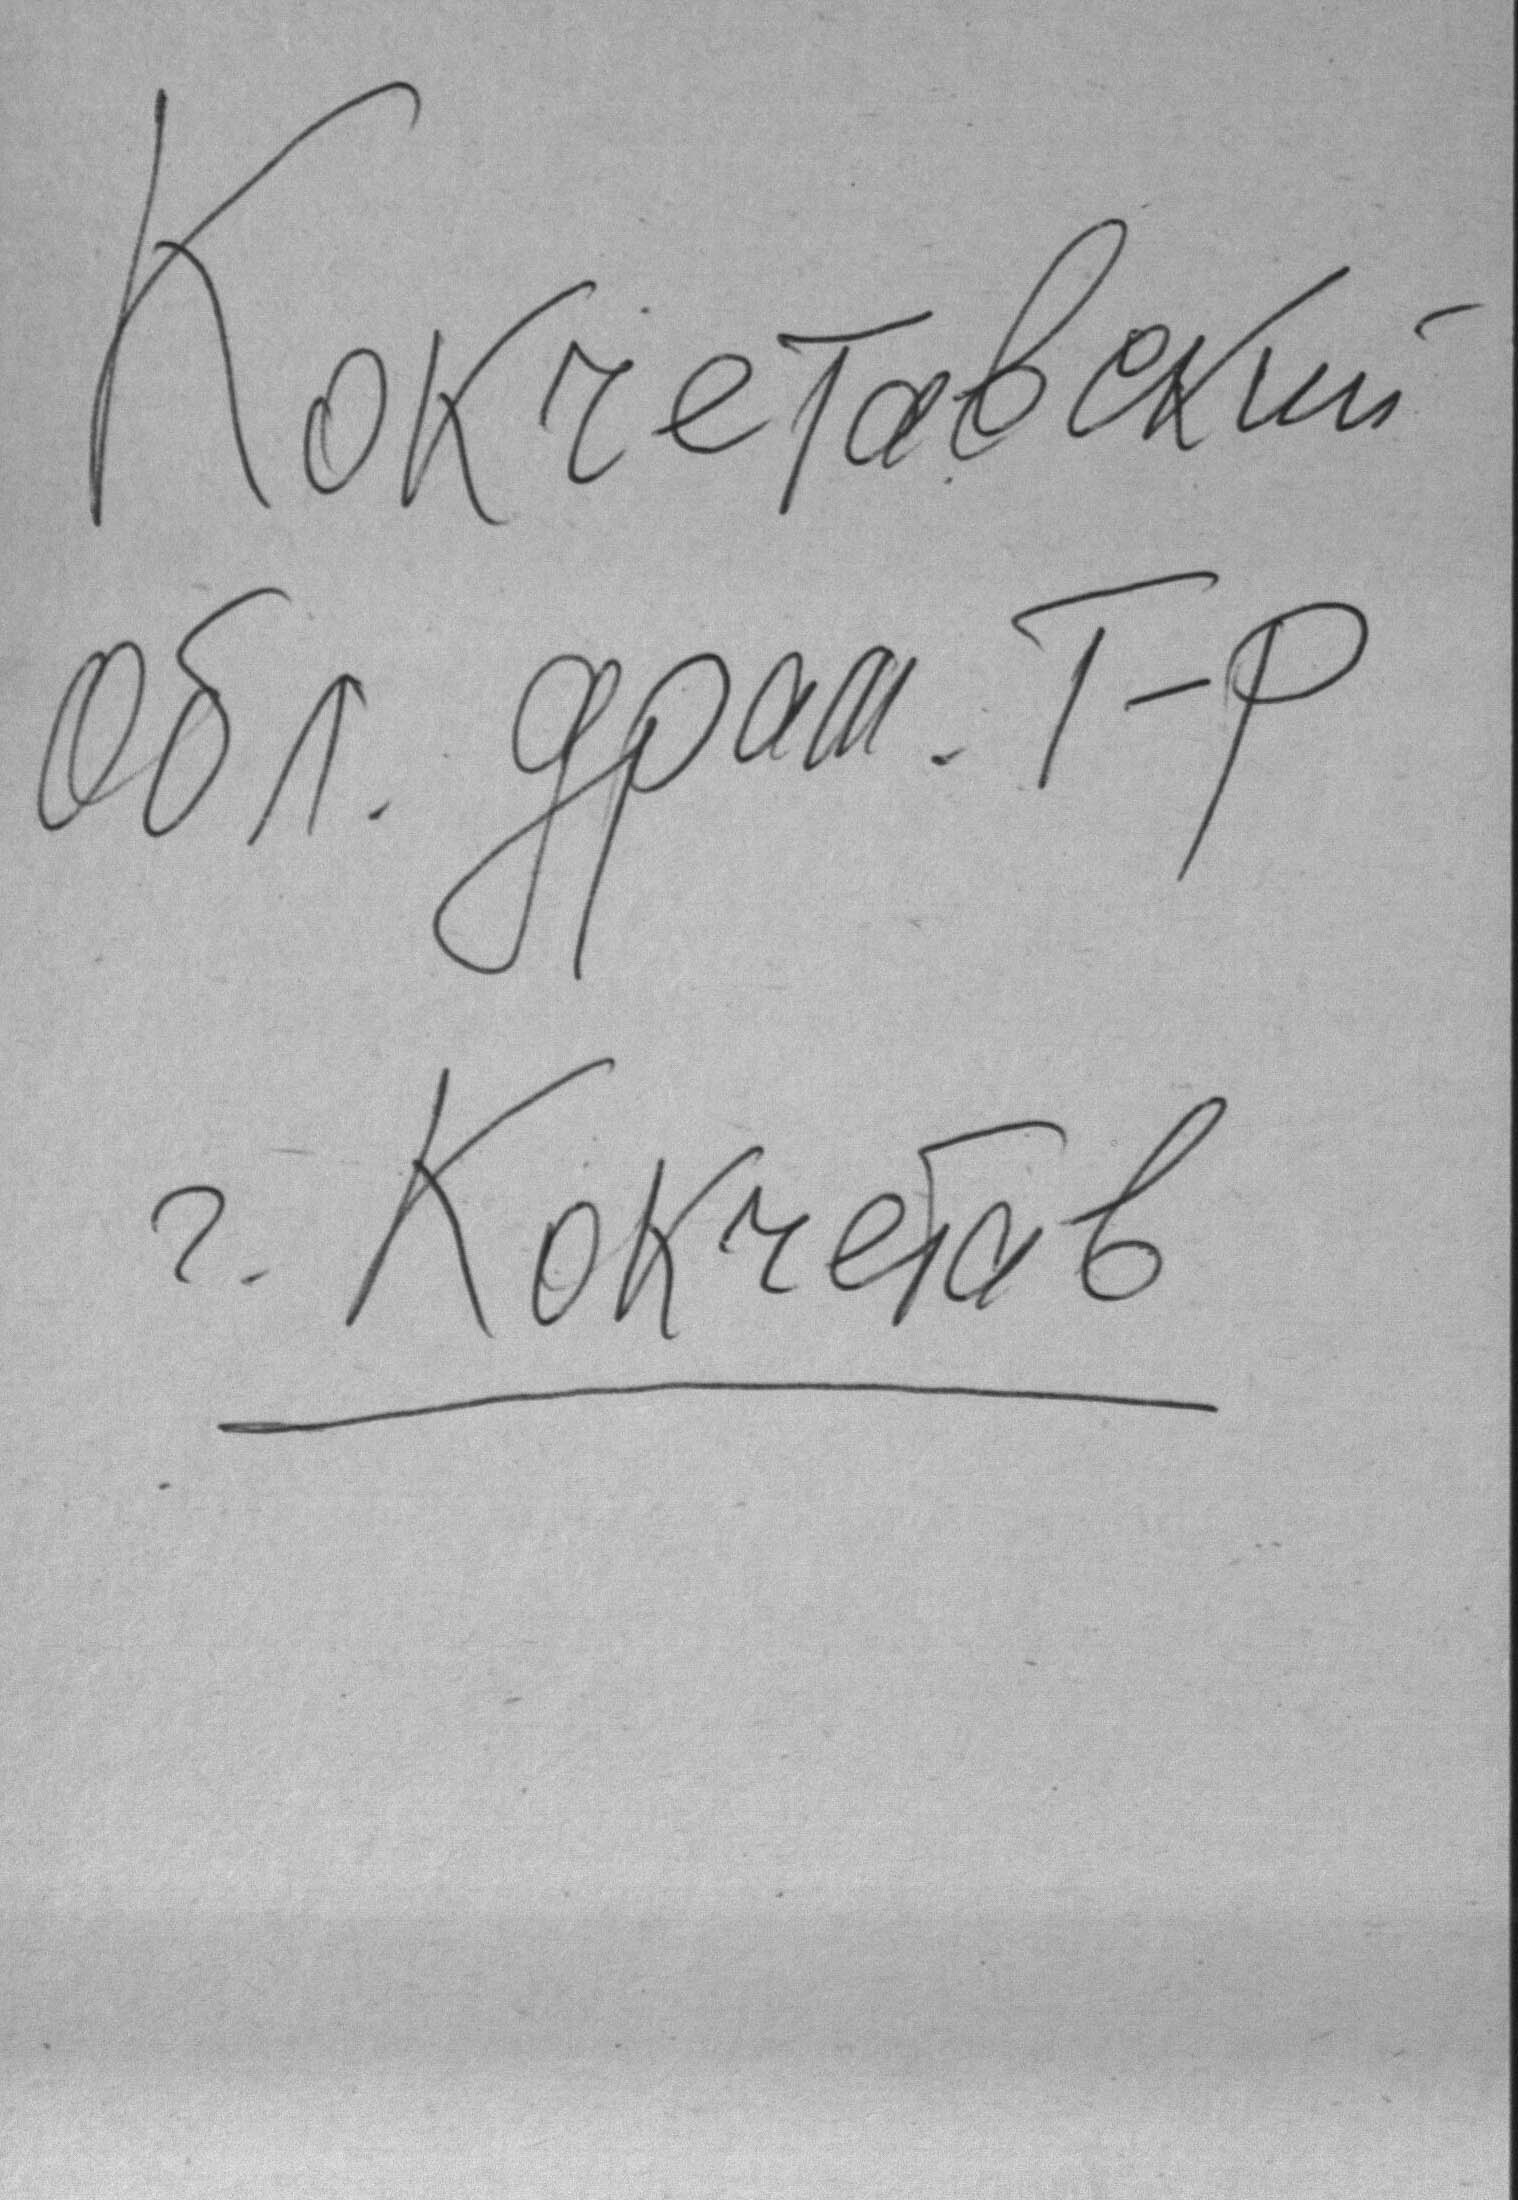 Кокчетавский
обл. драм. т-р
г. Кокчетав